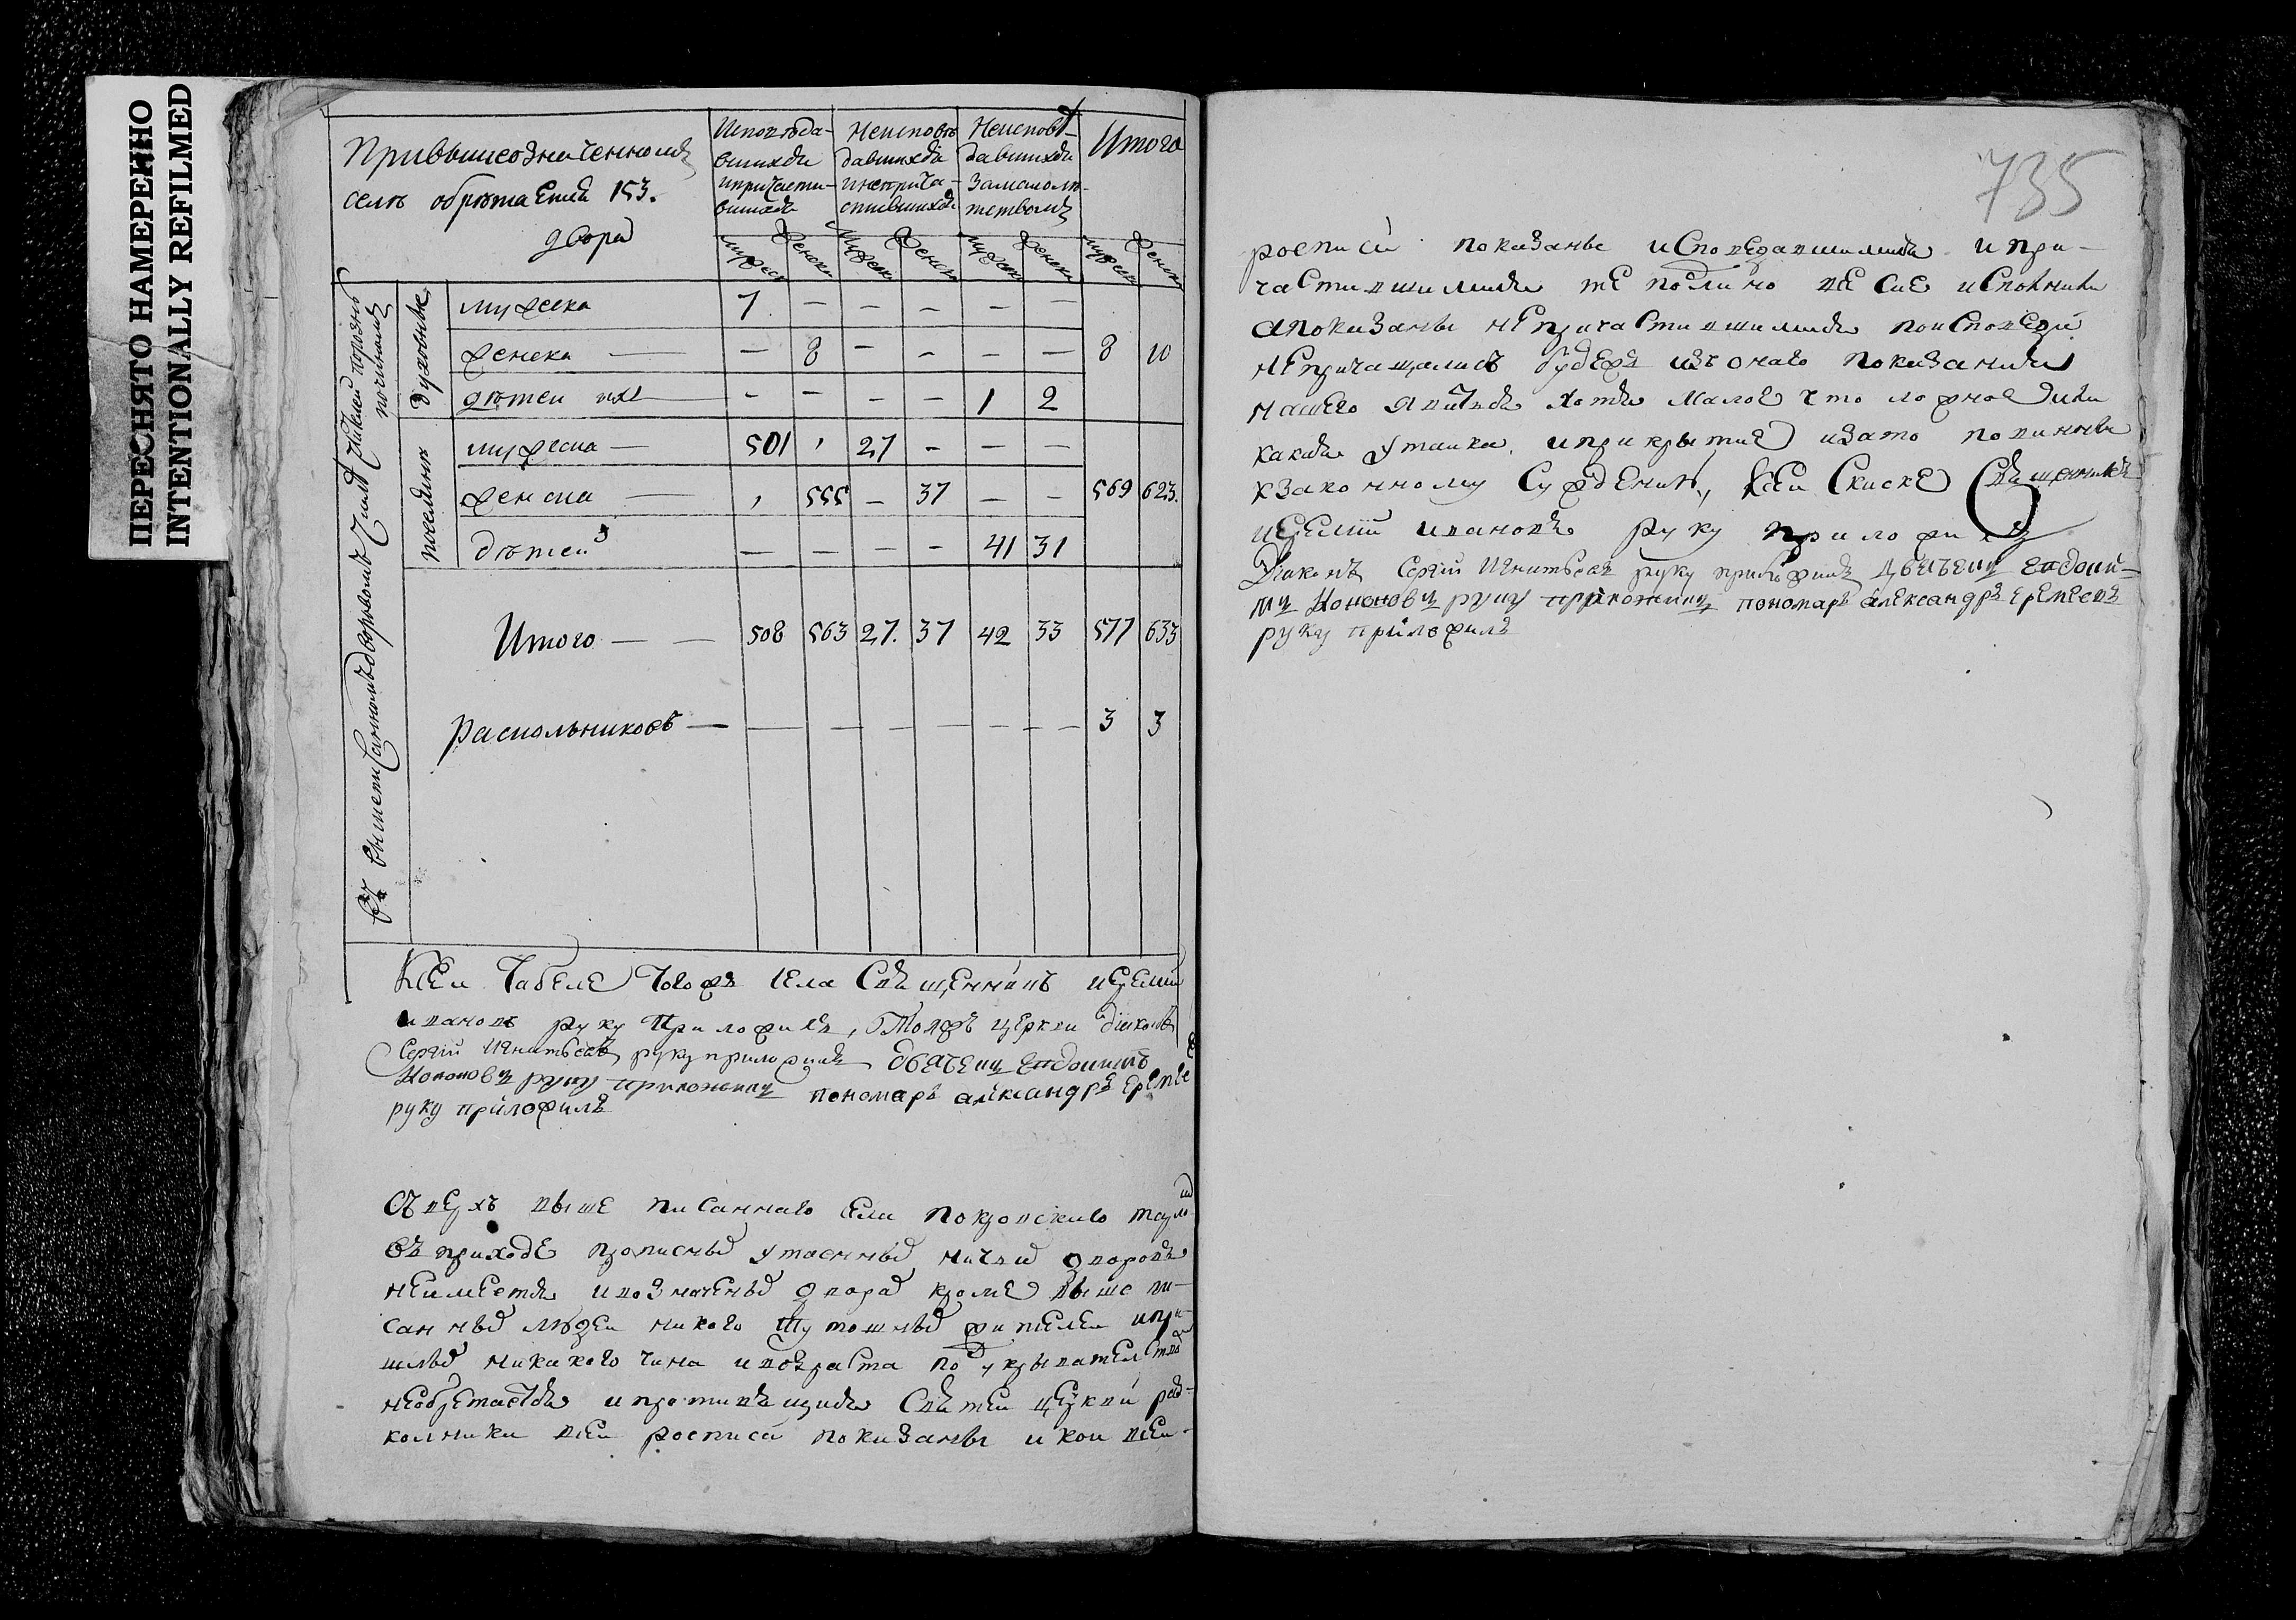 ПЕРЕСНЯТО НАМЕРЕННО
INTENTIONALLY REFILMED
Привышеозначенномъ
селѣ обрѣтается 153.
двора
Исповѣда-
вшихся
ипричасти-
вшихся
Неисповѣ
давшихся
инеприча-
стившихся
Неисповѣ-
давшихся
замалолѣ-
тствомъ
Итого
мужеск женски мужеск женски мужеск женски мужеск женски
духовныхъ
мужеска 7 — — — — —
женска — 8 — — — — 8 10
дѣтей ихъ — — — — 1 2
посацкихъ
мужеска — 501 , 27 — — —
женска — , 555 — 37 — — 569 623.
дѣтей — — — — 41 31
Итого — — 508 563 27. 37 42 33 577 633
Раскольниковъ — — — — — — — 3 3
Ксеи табеле тогожъ села Священникъ иеремий
ивановъ руку приложилъ, тояжъ церкви диаконъ
Сергий Игнатьевъ руку приложилъ дьячекъ евдокимъ
Кононовъ руку приложилъ пономарь александръ еремее
руку приложилъ
Сверхъ выше писаннаго села покровского
въ приходе прописныхъ утаенныхъ ничьихъ дворовъ
неимеется ивозначеныхъ двора кроме выше пи-
санныхъ людей никого тутошныхъ жителей и при
шлыхъ никакого чина ивозраста по укрывателство
необретается ипротивящияся Святей церкви рас-
колники всеи росписи показаны икои всеи-
735
росписи показаны исповедавшимися и при-
частившимися те подлино все сие исполнили
апоказаны непричастившимися поисповеди
непричащались буде жъ изъ онаго показания
нашего явится хотя малое что ложное или
какая утаика, иприкрытие изато повинны
кзаконному суждению, ксеи скаске Священникъ
иеремий ивановъ руку приложилъ
Диаконъ Сергий Игнатьевъ руку приложилъ дьячекъ евдоки-
мъ Кононовъ руку приложилъ пономарь александръ еремеевъ
руку приложилъ